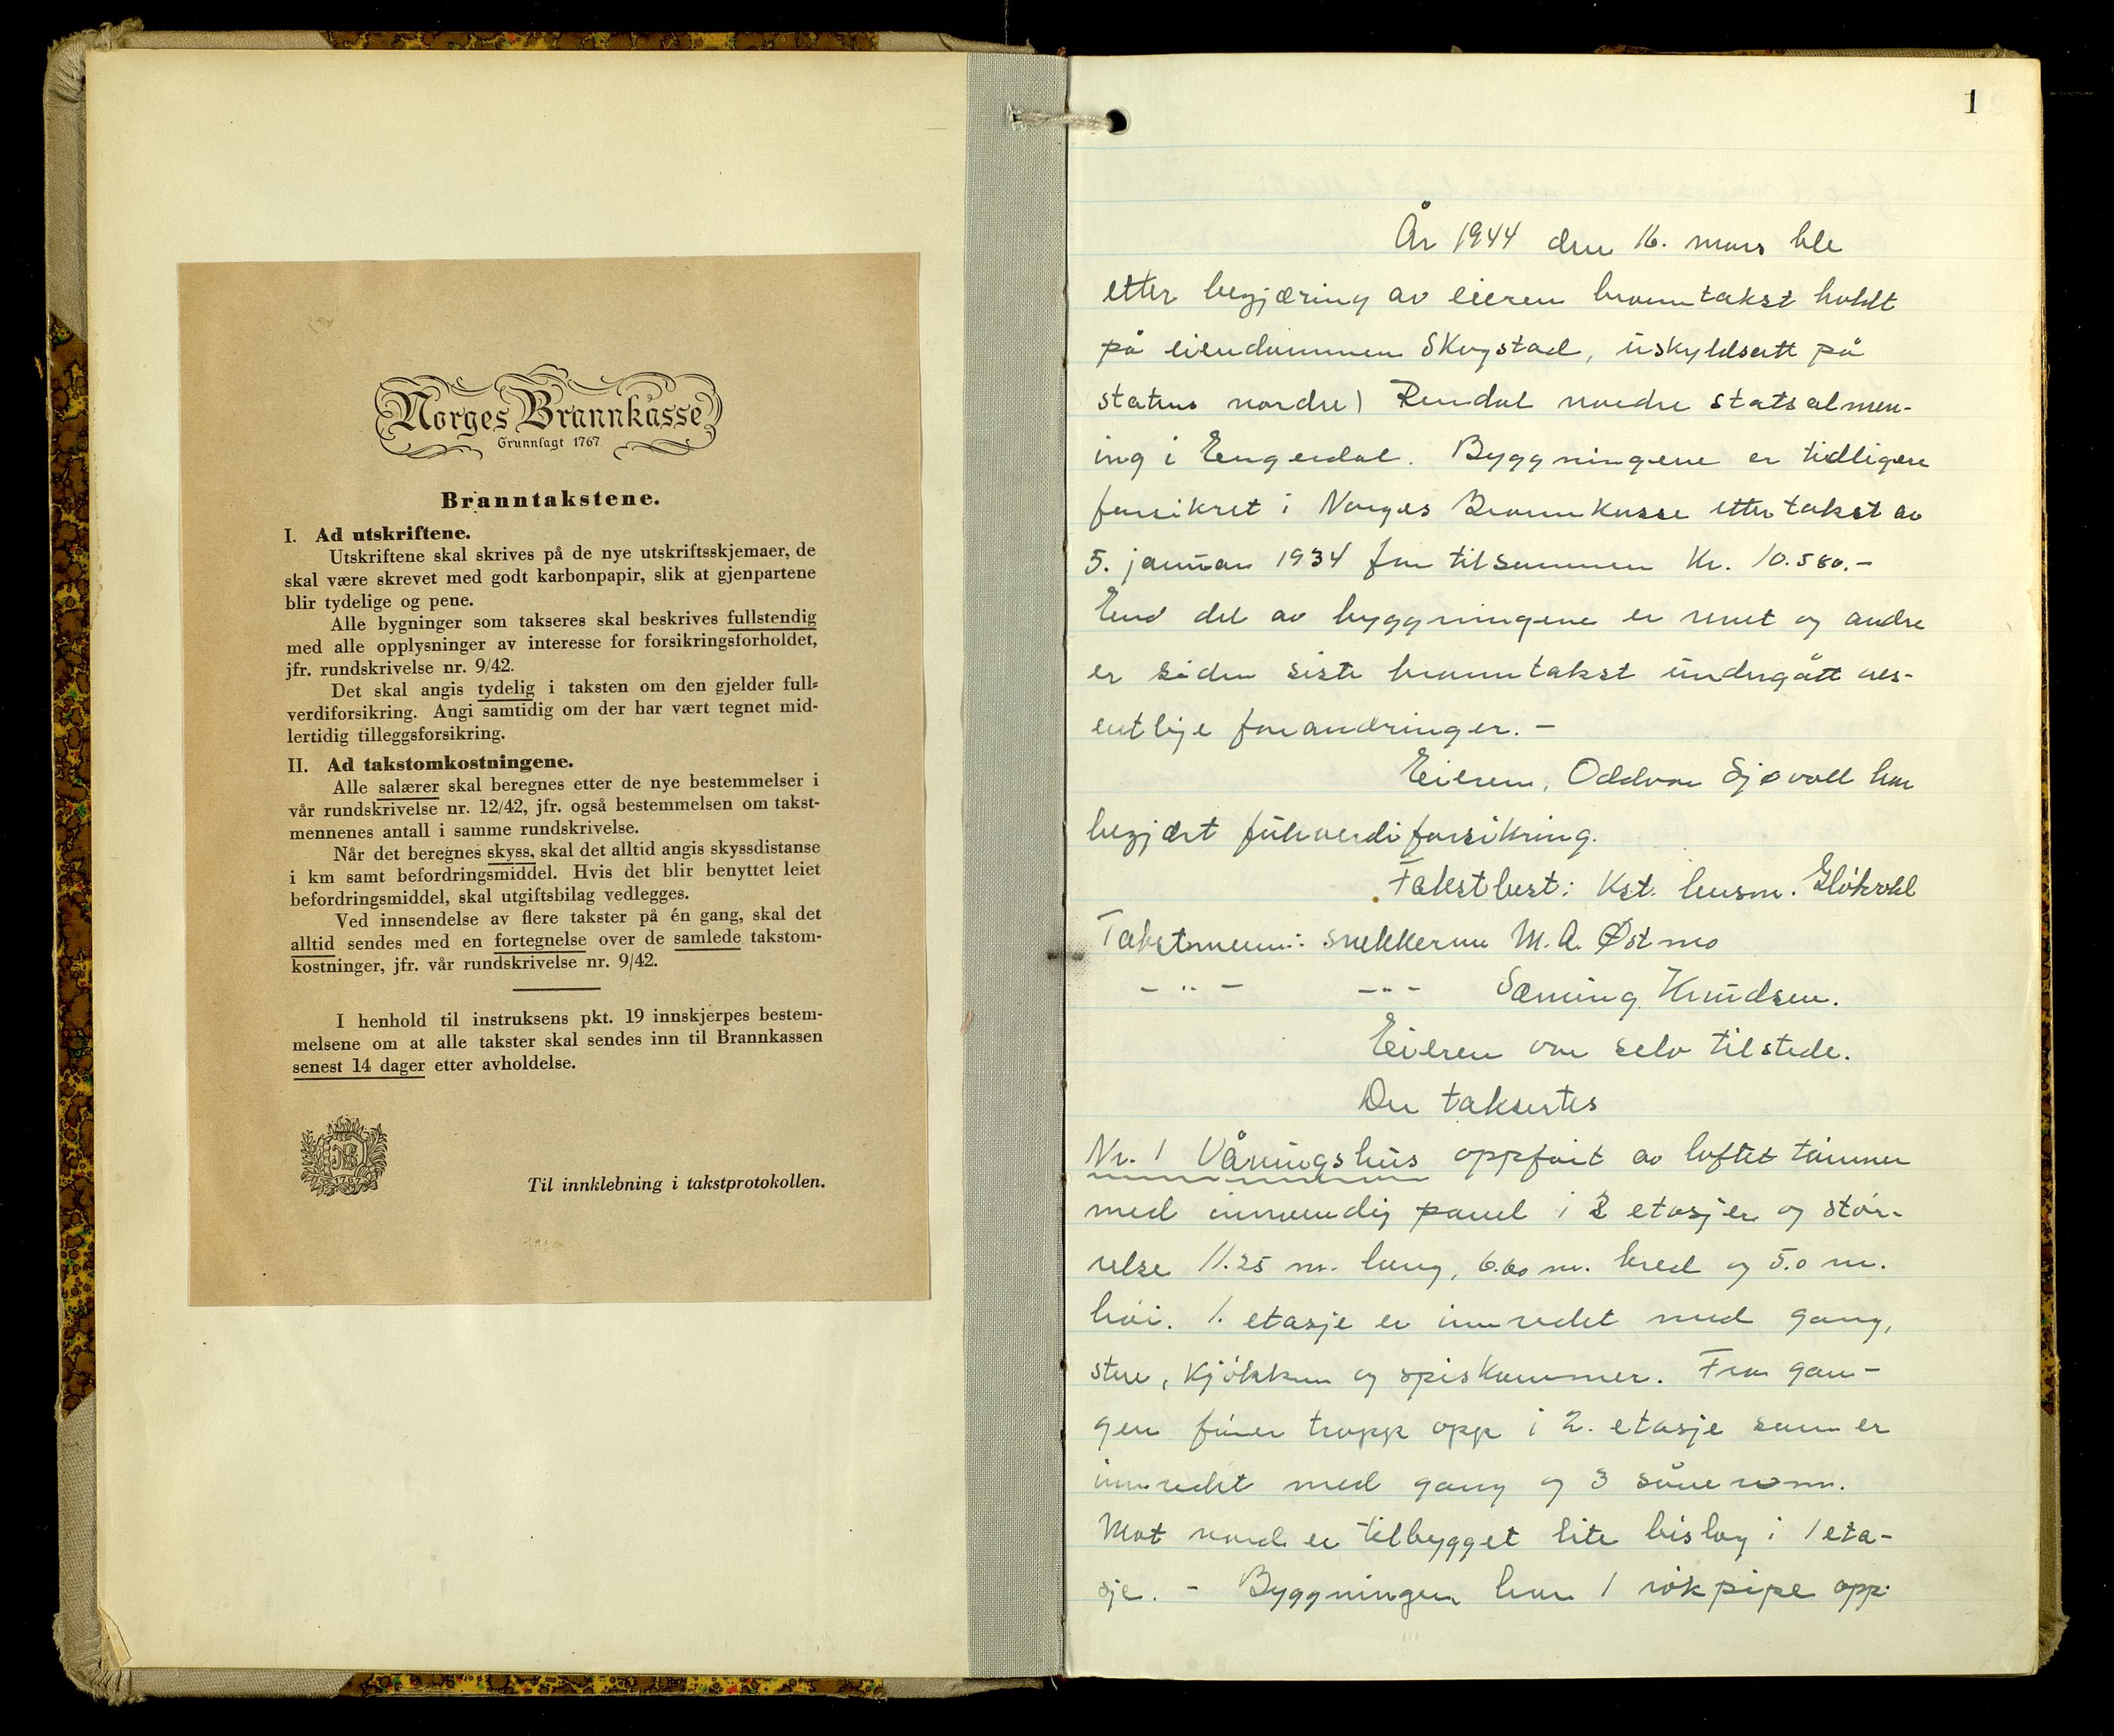 Norges Brannkasse
Grunnlagt 1767
Branntakstene.
I. Ad utskriftene.
Utskriftene skal skrives på de nye utskriftsskjemaer, de
skal være skrevet med godt karbonpapir, slik at gjenpartene
blir tydelige og pene.
Alle bygninger som takseres skal beskrives fullstendig
med alle opplysninger av interesse for forsikringsforholdet,
jfr. rundskrivelse nr. 9/42.
Det skal angis tydelig i taksten om den gjelder full-
verdiforsikring. Angi samtidig om der har vært tegnet mid-
lertidig tilleggsforsikring.
II. Ad takstomkostningene.
Alle salærer skal beregnes etter de nye bestemmelser i
vår rundskrivelse nr. 12/42, jfr. også bestemmelsen om takst-
mennenes antall i samme rundskrivelse.
Når det beregnes skyss, skal det alltid angis skyssdistanse
i km samt befordringsmiddel. Hvis det blir benyttet leiet
befordringsmiddel, skal utgiftsbilag vedlegges.
Ved innsendelse av flere takster på én gang, skal det
alltid sendes med en fortegnelse over de samlede takstom-
kostninger, jfr. vår rundskrivelse nr. 9/42.
I henhold til instruksens pkt. 19 innskjerpes bestem-
melsene om at alle takster skal sendes inn til Brannkassen
senest 14 dager etter avholdelse.
NB
1767
Til innklebning i takstprotokollen.
1
År 1944 den 16. mars ble
etter begjæring av eieren branntakst holdt
på eiendommen Skogstad, uskyldsatt på
statens nordre) Rendal nordre statsalmen-
ing i Engerdal. Byggningene er tidligere
forsikret i Norges Brannkasse etter takst av
5. januar 1934 for tilsammen Kr. 10.580.-
del av byggningene er revet og andre
er siden siste branntakst undergått ves-
entlige forandringer. -
Eieren, Oddvar Sjøvoll har
begjært fullverdiforsikring.
Takstbest: Kst. lensm.
Takstmenn: snekkerne M. A. Østmo
- " - - " - Sæming Knudsen.
Eieren var selv tilstede.
Der taksertes
Nr. 1 Våningshus oppført av laftet tømmer
med innvendig panel i 2 etasjer og stør-
relse 11.25 m. lang, 6.60 m. bred og 5.0 m.
høi. 1. etasje er innredet med gang,
stue, kjøkken og spiskammer. Fra gan-
gen fører trapp opp i 2. etasje som er
innredet med gang og 3 soverom.
Mot nord er tilbygget lite bislag i 1 eta-
sje. - Byggningen har 1 røkpipe opp-